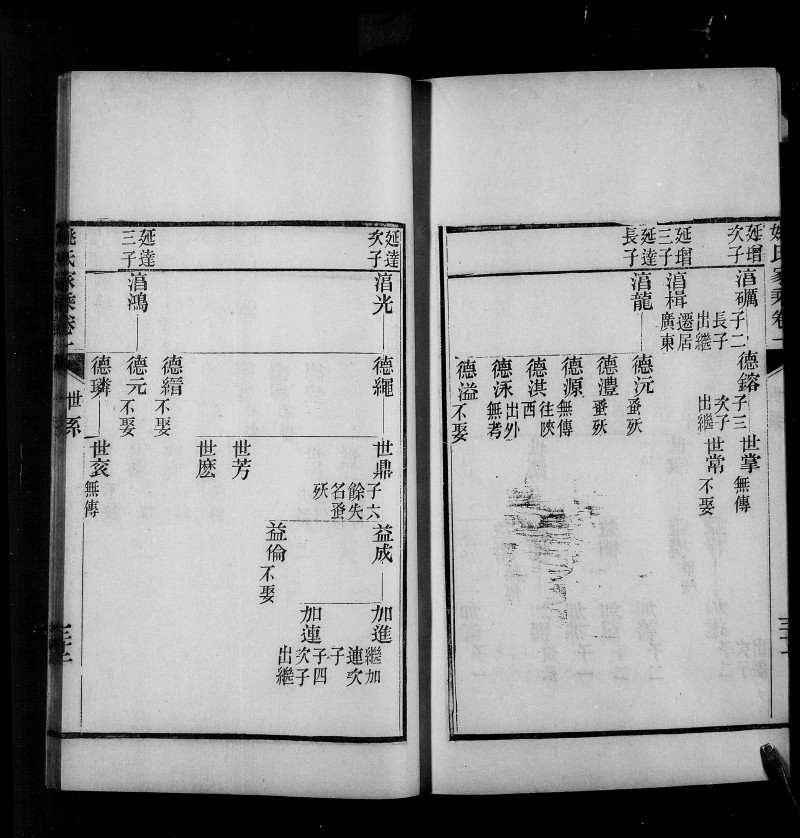 姚氏家乘卷一
延璔次子
湆礪
子二
長子出繼
德鎔
子三
次子出繼
世掌
無傳
世常
不娶
延璔三子
湆楫
遷居廣東
延達長子
湆龍
德沅
蚤殀
德澧
蚤殀
德源
無傳
德淇
往陝西
德泳
出外無考
德溢
不娶
延達次子
湆光
德繩
世鼎
子六
餘失名蚤殀
益成
加進
繼加連次子
加連
子四
次子出繼
益倫
不娶
世芳
世麽
德縉
不娶
延達三子
湆鴻
德元
不娶
德璘
世袤
無傳
姚氏家乘卷一
世系